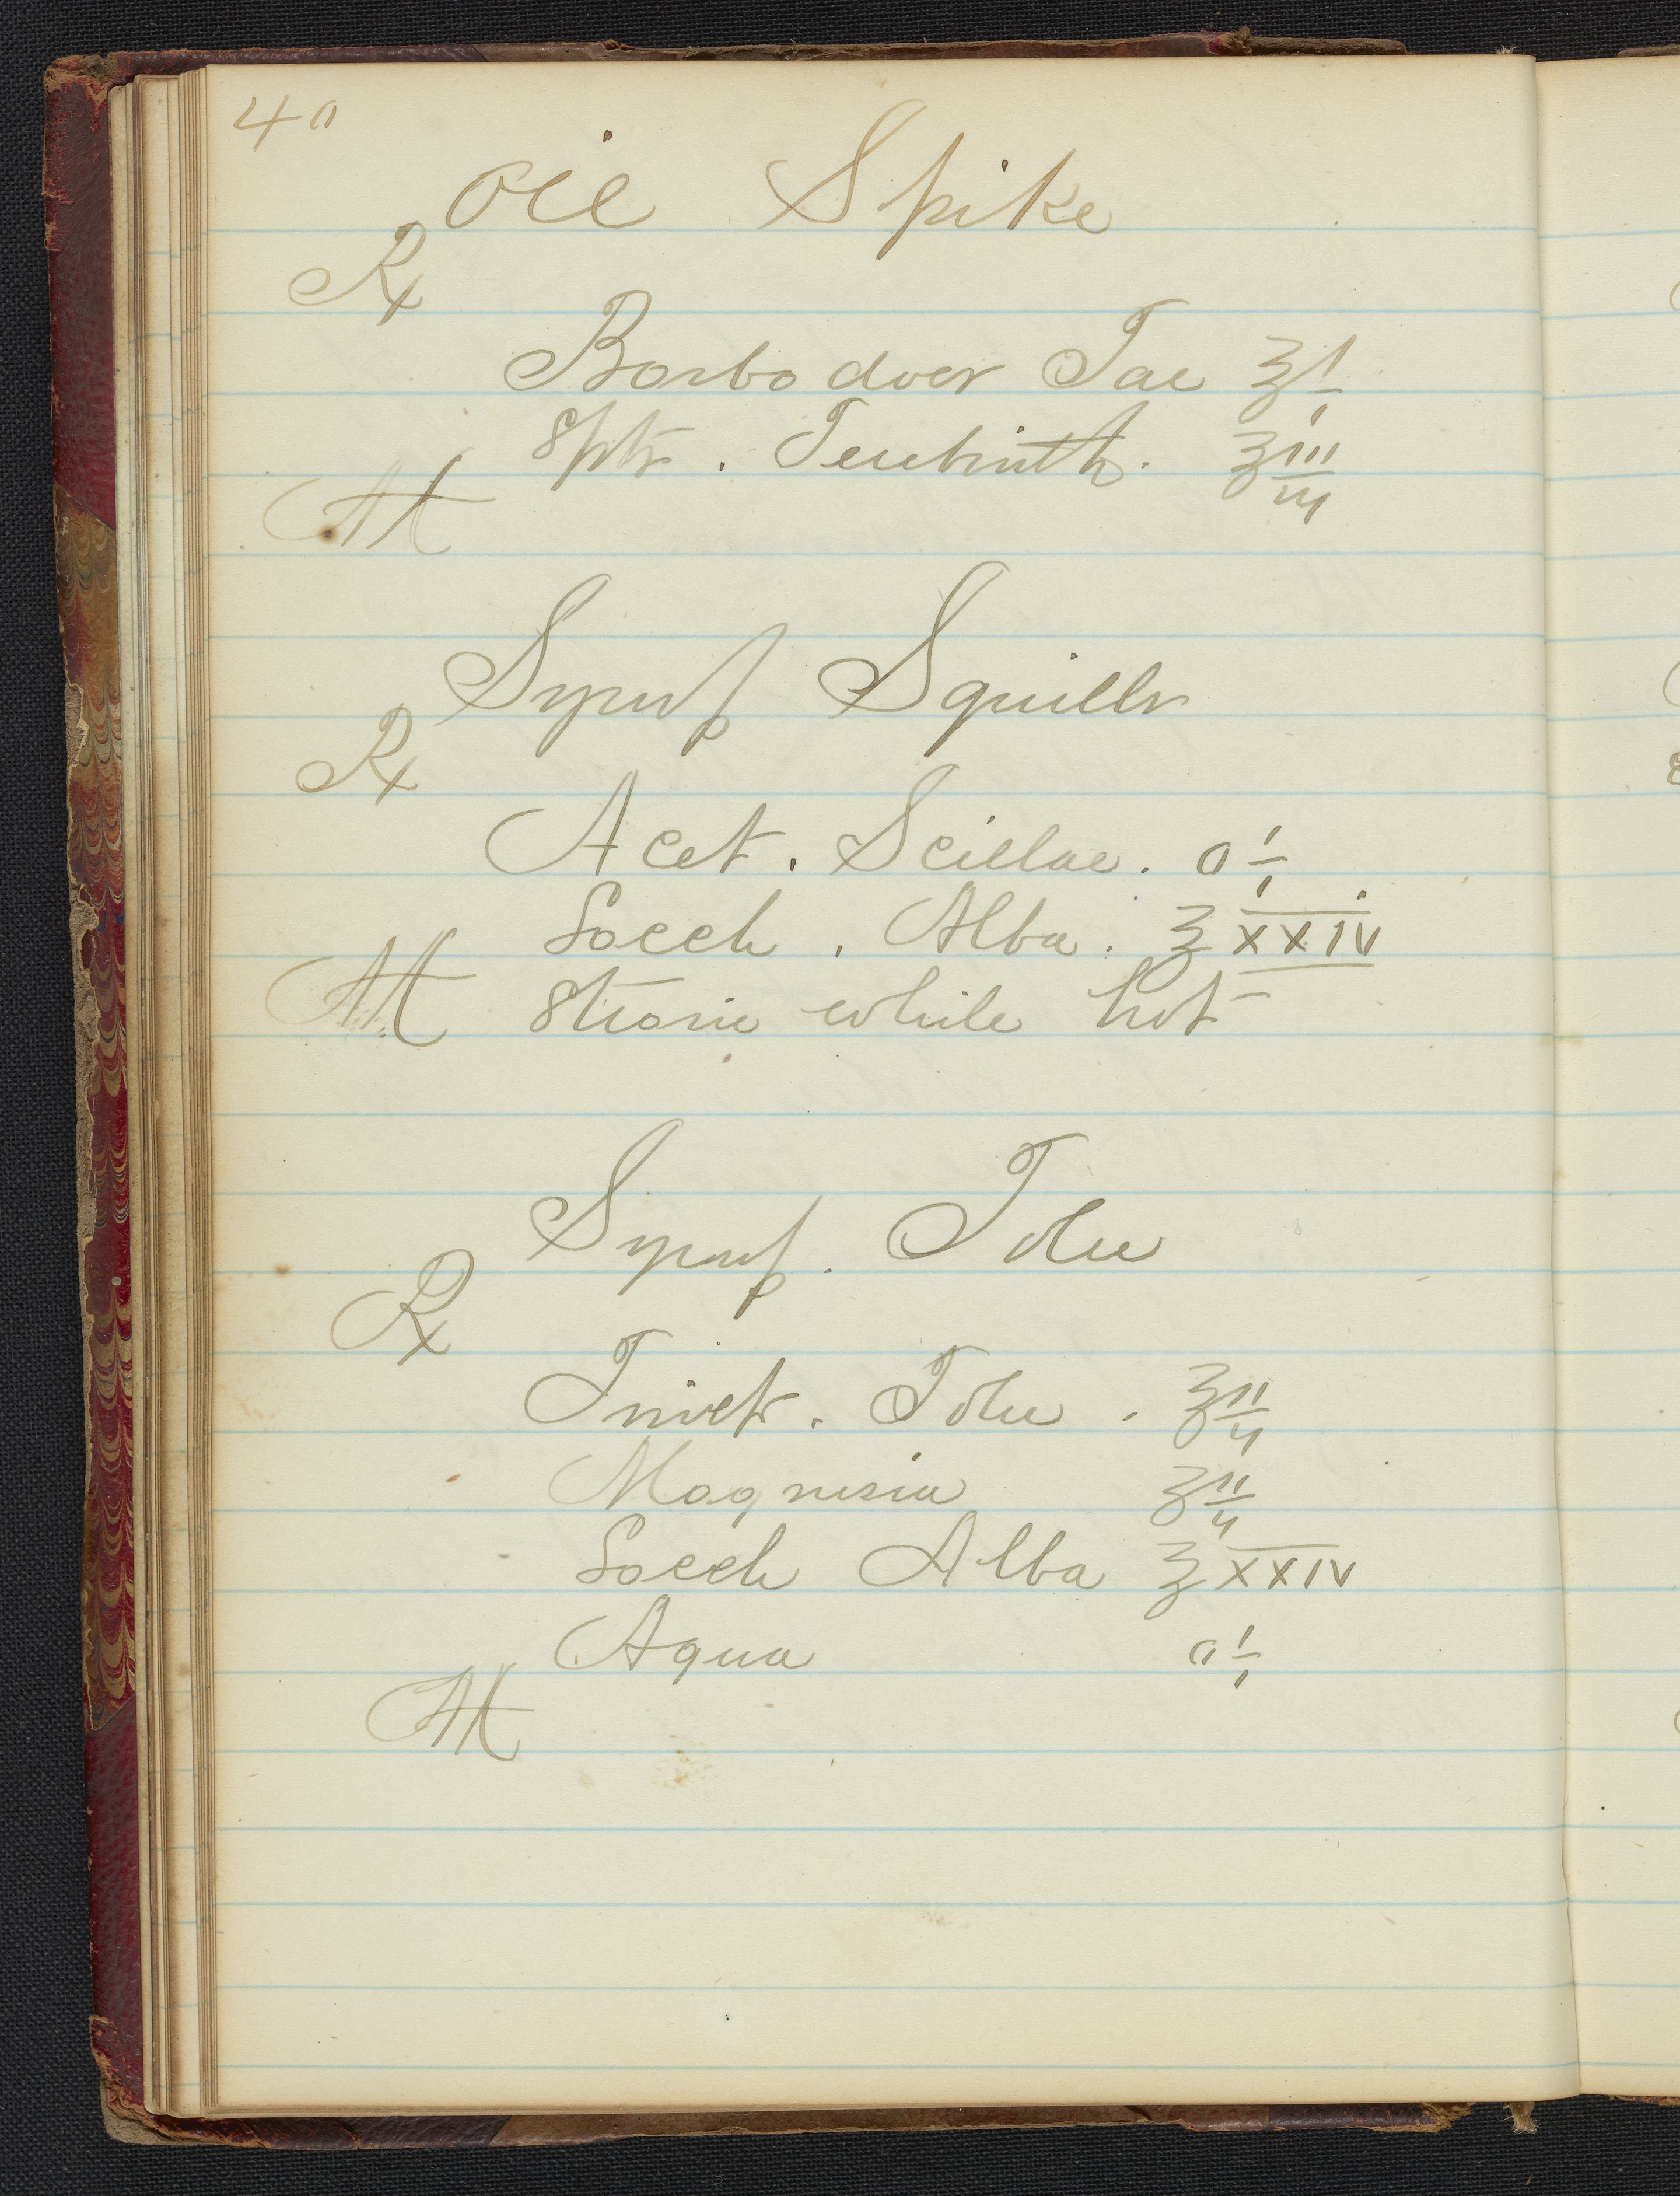 40
Oil Spike
℞
Barbadoer Tar ℥i
Spts. Terebinth. ℥iii
M
Syrup Squills
℞
Acet. Scillae. Oi
Sacch. Alba. ℥XXIV
M Strain while hot
Syrup. Tolu
℞
Tinct. Tolu. ℥ii
Magnesia ℥ii
Sacch Alba ℥XXIV
Aqua Oi
M